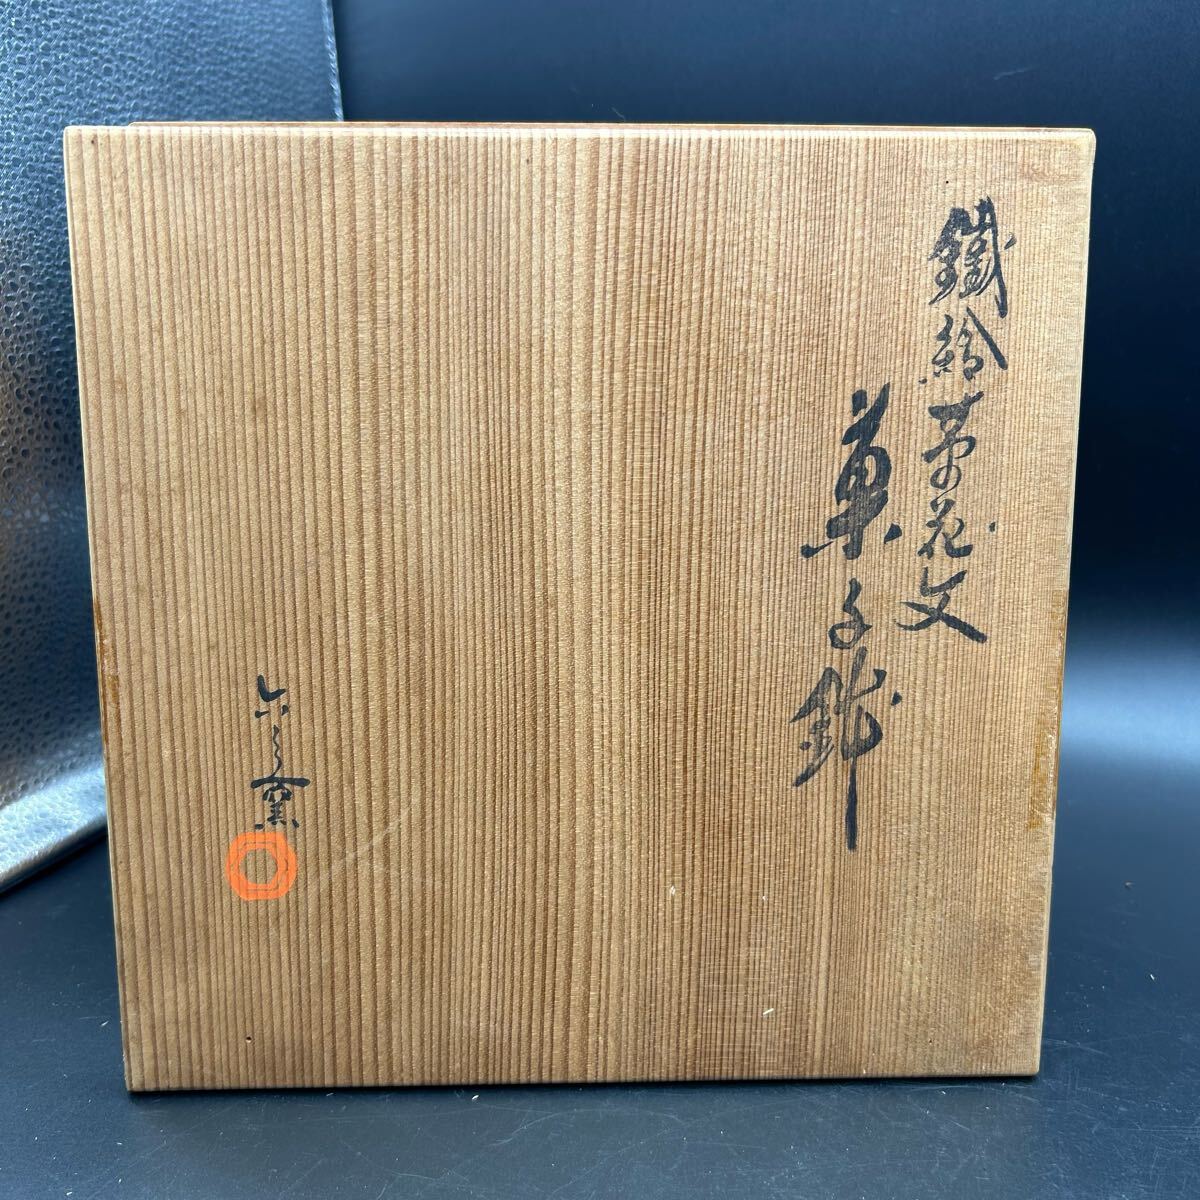 鐵絵草花文
菓子鉢
六々窯